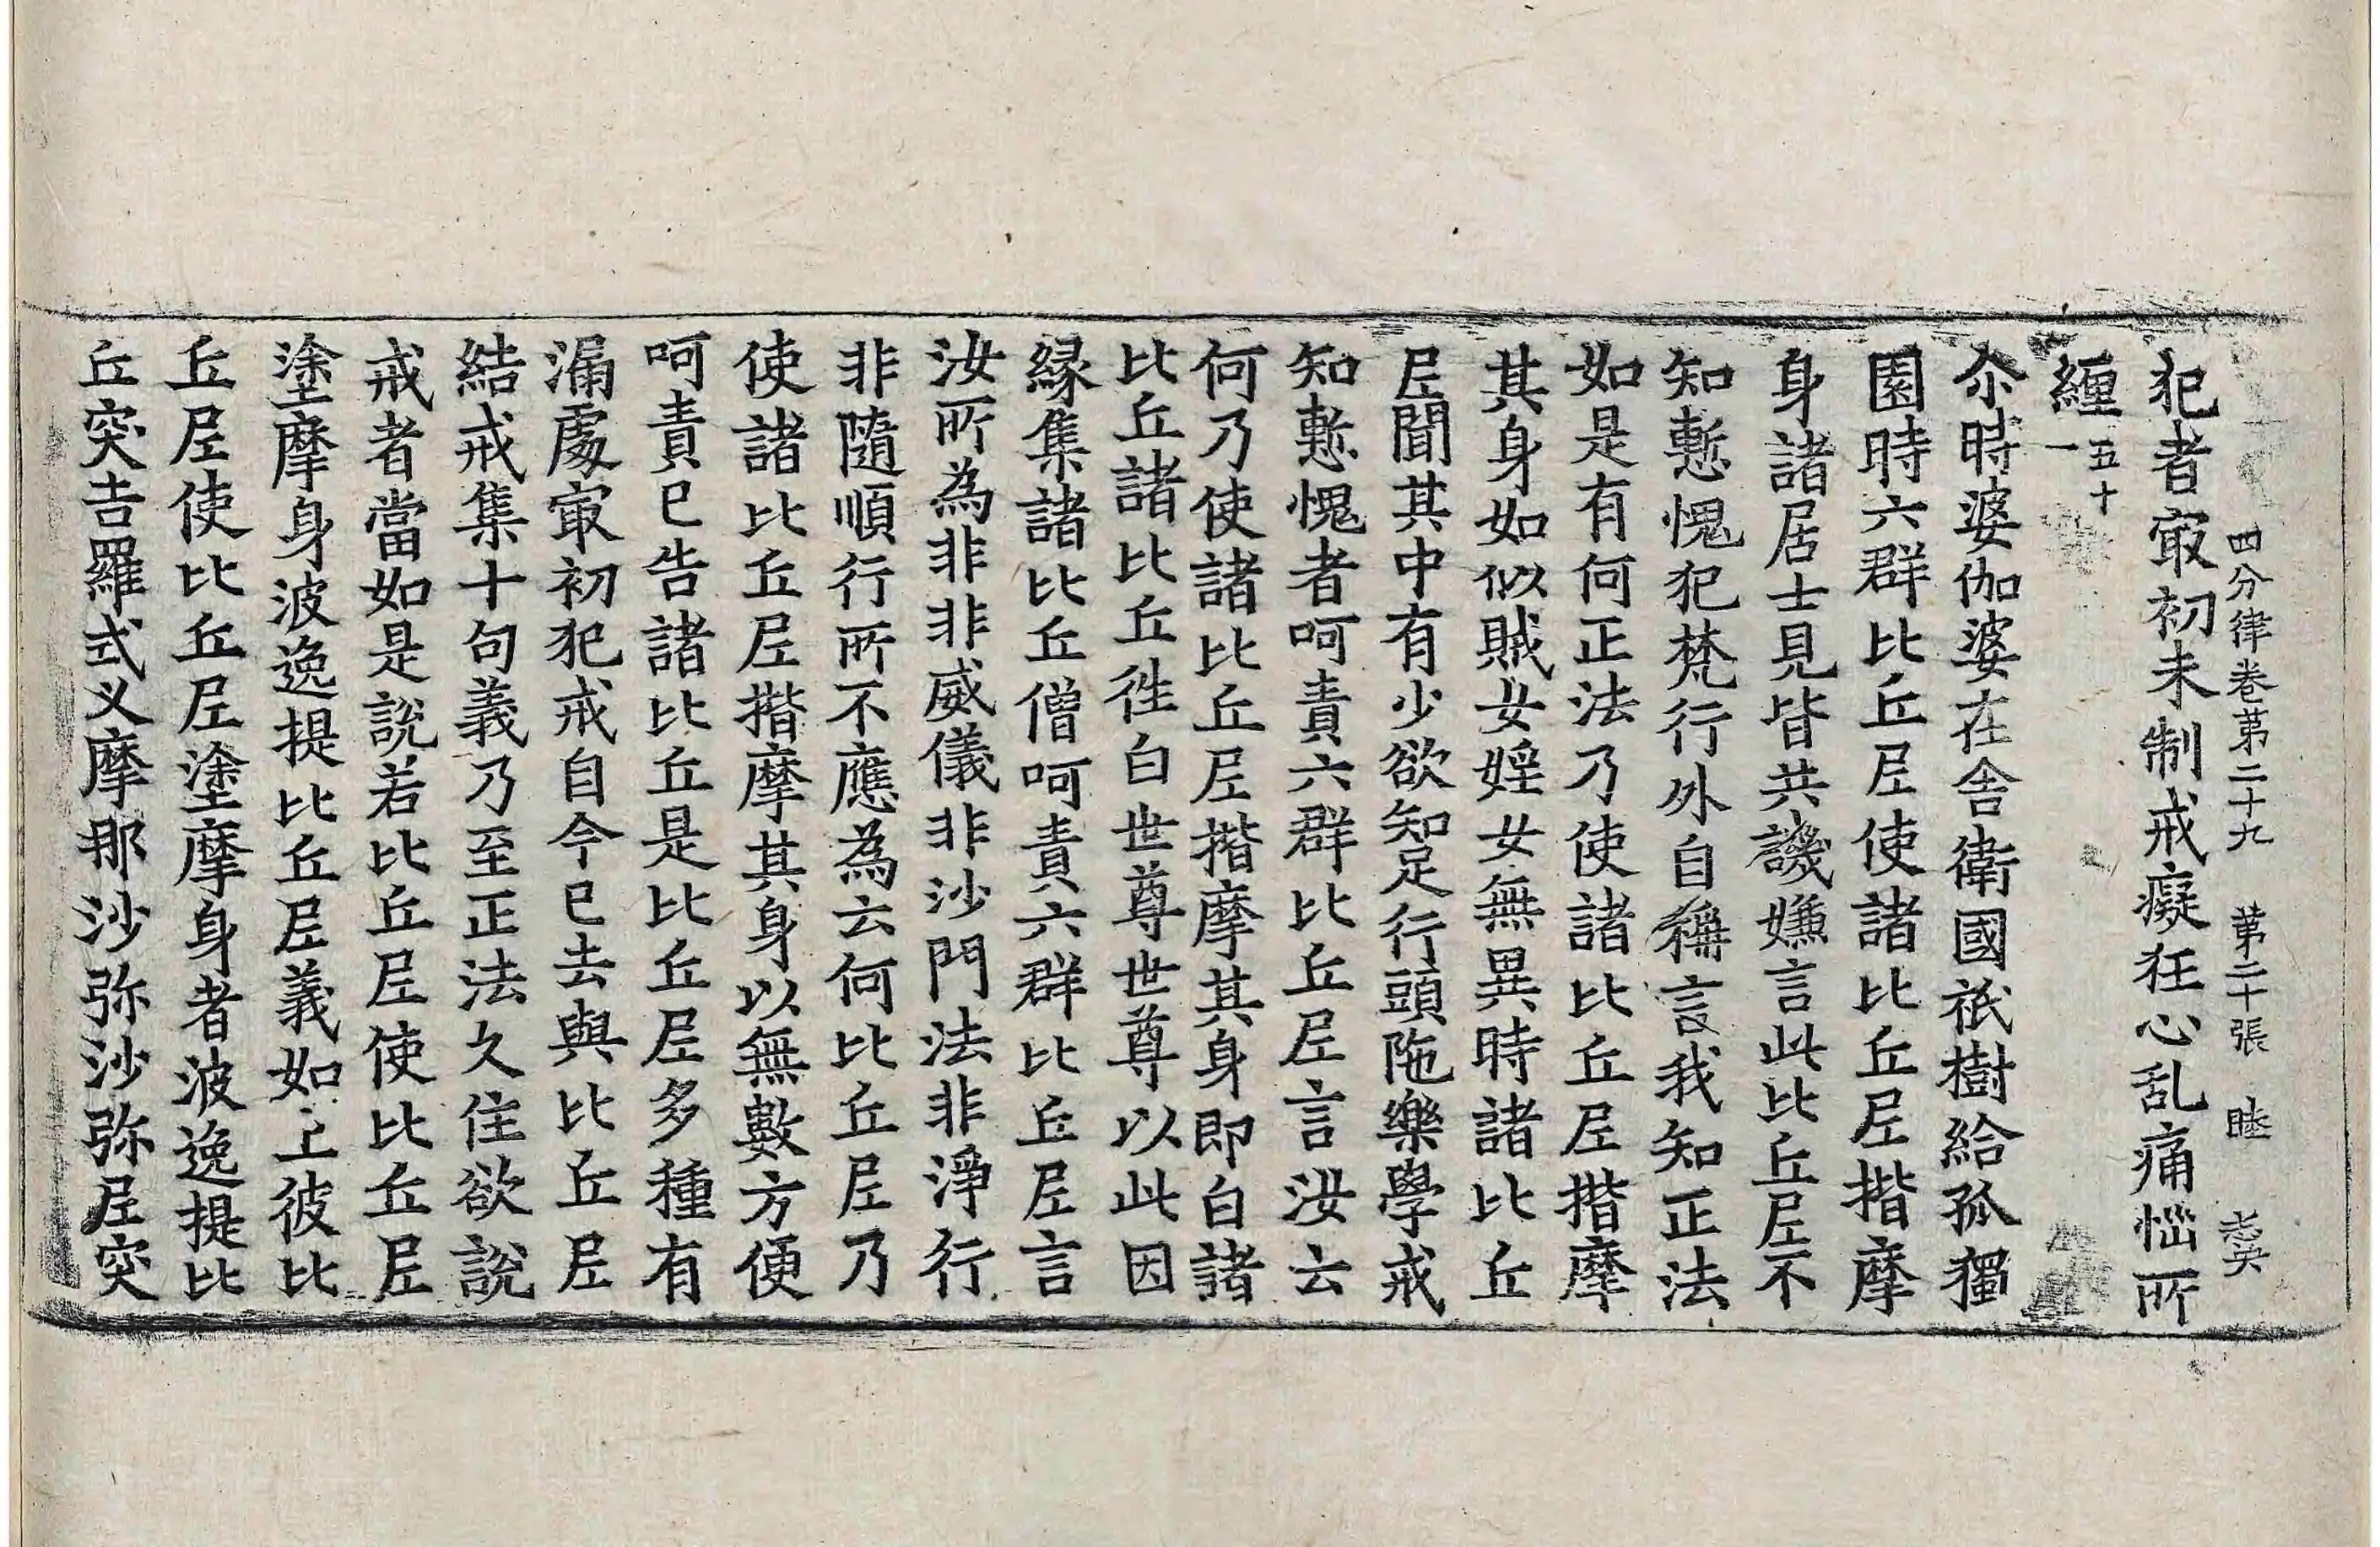 四分律卷第二十九 第二十張 睦
犯者㝡初未制戒癡狂心乱痛惱所
纏五十一
尒時婆伽婆在舍衛國祇樹給孤獨
園時六群比丘尼使諸比丘尼揩摩
身諸居士見皆共譏嫌言此比丘尼不
知慙愧犯梵行外自稱言我知正法
如是有何正法乃使諸比丘尼揩摩
其身如似賊女婬女無異時諸比丘
尼聞其中有少欲知足行頭陁樂學戒
知慙愧者呵責六群比丘尼言汝云
何乃使諸比丘尼揩摩其身即白諸
比丘諸比丘徃白世尊世尊以此因
縁集諸比丘僧呵責六群比丘尼言
汝所為非非威儀非沙門法非淨行
非隨順行所不應為云何比丘尼乃
使諸比丘尼揩摩其身以無數方便
呵責已告諸比丘是比丘尼多種有
漏處㝡初犯戒自今已去與比丘尼
結戒集十句義乃至正法久住欲說
戒者當如是說若比丘尼使比丘尼
塗摩身波逸提比丘尼義如上彼比
丘尼使比丘尼塗摩身者波逸提比
丘突吉羅式叉摩那沙弥沙弥尼突